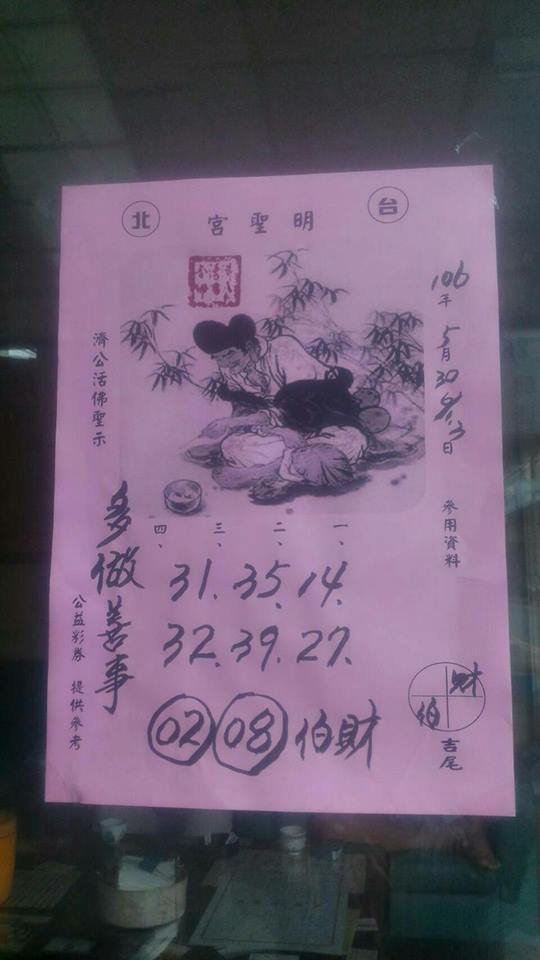 台 明聖宮 北
106年5月30日
參用資料
濟公活佛聖示
一、二、三、四、
31. 35. 14.
32. 39. 27.
02 08 伯財
多做善事
公益彩券 提供參考
財
伯
吉尾